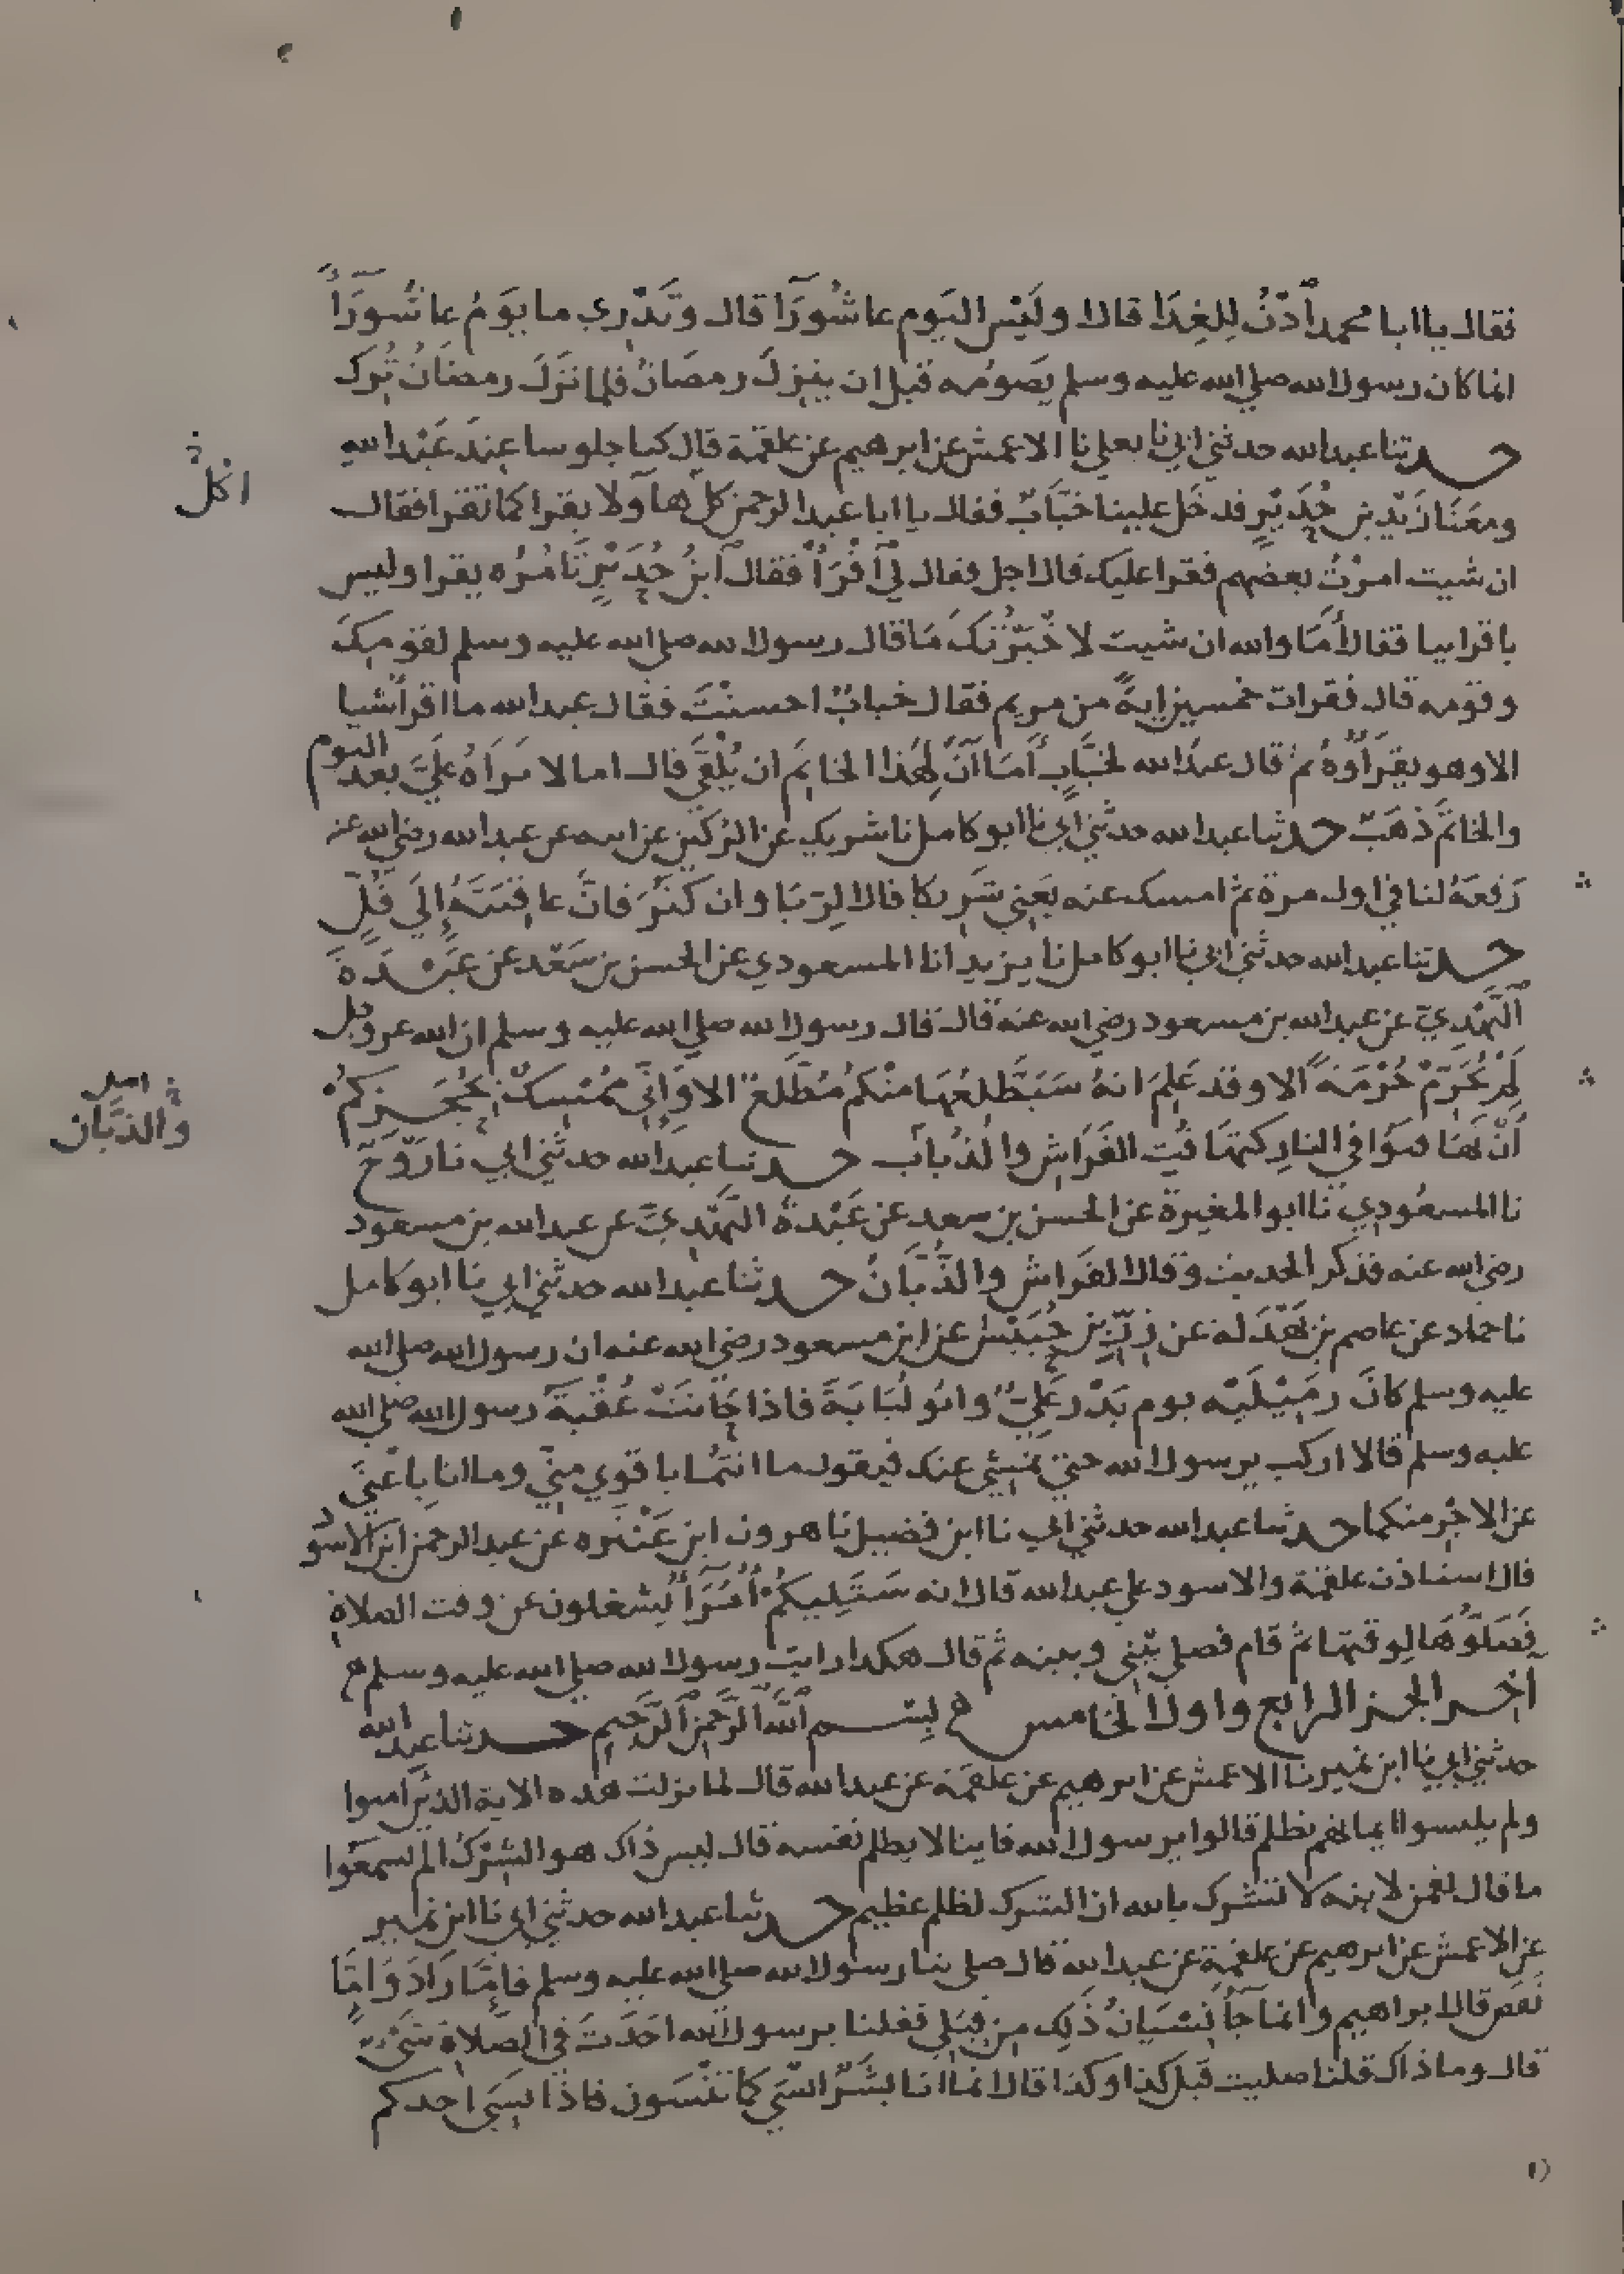 فقال يا ابا محمد اُدْنُ لِلغِدَا قال او لَيْس اليَوم عاشُورَآ قال وتَدْرِي ما يَومُ عاشُورَآ
انما كان رسول الله صلي الله عليه وسلم يَصَومُه قبل ان ينزلَ رمضانُ فلما نَزَلَ رمضانُ تُرِكَ
حدثنا عبد الله حدثني ابي نا يعلي نا الاعمش عن ابرهيم عن علقمة قال كنا جلوسا عِندَ عَبْد الله
ومعَنَا زَيْد بن حُدَيْرٍ فدخَل علينا خبَّابٌ فقال يا ابا عبد الرحمن كلّ هاولا يقرا كما تقرا فقال
ان شيت امرْتُ بعضهم فقرا عليك قال اجل فقال لِي اقْرَأ فقال ابنُ حُدَيْرٍ تَامُرُه يقرا وليس
باقراينا فقال أمَا والله ان شيت لاخبِّرنّكَ مَا قال رسول الله صلي الله عليه وسلم لقومِكَ
وقومه قال فقرات خمسين ايةً من مريم فقال خبابٌ احسنْتَ فقال عبد الله ما اقرأ شيا
الا وهو يقرَأوُهُ ثم قال عبدُ الله لخبَّابٍ أمَا آنَ لِهَذا الخاتَم ان يُلْقَي قال اما لا تَرَاهُ عَلَيَّ بعد اليوم
والخاتمَ ذهَبٌ حدثنا عبد الله حدثني ابي نا ابو كامل نا شريك عن الرُكَين عن ابيه عن عبد الله رضي الله عنه
رَفعَهُ لنا في اول مرة ثم امسك عنه يَعني شَرِيكا قال الرِّبَا وان كَثُرَ فانَّ عاقبَتَهُ إلَي قُلٍّ
حدثنا عبد الله حدثني ابي نا ابو كامل نا يزيد انا المسعودي عن الحسن بن سَعْد عن عَبْدَةَ
النَّهْدِيّ عن عبد الله بن مسعود رضي الله عنه قال قال رسول الله صلي الله عليه وسلم ان الله عز وجل
لَمْ يُحَرِّمْ حُرْمَةً الا وقد عَلِمَ انهُ سَيَطَّلِعُهَا منْكم مُطَّلِعٌ الا وَإنّي مُمْسِكٌ بِحُجَزِكمُ
أنْ تَهَافتوُا في النارِ كتهَافُتِ الفَرَاشِ والذُبابِ حدثنا عبد الله حدثني ابي نا رَوْحٌ
نا المسعُودي نا ابو المغيرة عن الحسن بن سعد عن عَبْدةَ النَّهْدِيِّ عن عبد الله بن مسعود
رضي الله عنه فذكر الحديث وقال الفَرَاش والذُّبَّانُ حدثنا عبد الله حدثني ابي نا ابو كامل
نا حماد عن عاصم بن بَهْدَلَة عن زِرِّ بن حُبَيْش عن ابن مسعود رضي الله عنه ان رسول الله صلي الله
عليه وسلم كانَ زمَيْلَيْه يوم بَدْر عَليٌّ وابُو لُبَابَةَ فاذا حَانَتْ عُقْبَةُ رسول الله صلي الله
عليه وسلم قالا اركب يرسول الله حتي نمشي عنك فيقول ما انتُما باقوي منّي وما انا باغنَي
عن الاجْر منكما حدثنا عبد الله حدثني ابي نا ابن فضيل نا هرون ابن عَنْتَره عن عبد الرحمن ابن الاسود
قال استاذن علقمة والاسود علي عبد الله قال انه سَتَلِيكمُ أُمَرَآُ يُشغلون عن وقت الصلاةِ
فَصَلّوُهَا لِوقتها ثم قام فصلي بَيْني وبينه ثم قال هكذا رايت رسول الله صلي الله عليه وسلم ه
آخر الجز الرابع واول الخامس ه بِسْم اللَّه الرَّحْمَن الرَّحِيم حدثنا عبد الله
حدثني ابي نا ابن نمير نا الاعمش عن ابرهيم عن علقمة عن عبد الله قال لما نزلت هذه الاية الذين امنوا
ولم يلبسوا ايمانهم بظلم قالوا يرسول الله فاينا لا يظلم نفسه قال ليس ذاك هو الشِرْكُ الم تسمعُوا
ما قال لقمن لابنه لا تشرك بالله ان الشرك لظلم عظيم حدثنا عبد الله حدثني ابي نا ابن نمير
عن الاعمش عن ابرهيم عن علقمة عن عبد الله قال صلي بنا رسول الله صلي الله عليه وسلم فاِمَّا زادَ وَامَّا
نَقصَ قال ابراهيم وانما جآ نِسْيَانُ ذَلِك مِن قِبَلي فقلنا يرسول الله احَدَثَ في الصَّلاة شَيْءٌ
قال وما ذاك قلنا صليت قبل كذا وكذا قال انما انا بشَرٌ انسَي كما تَنْسَون فاذا نسِيَ احدكم
اكلّ
والذبَّان